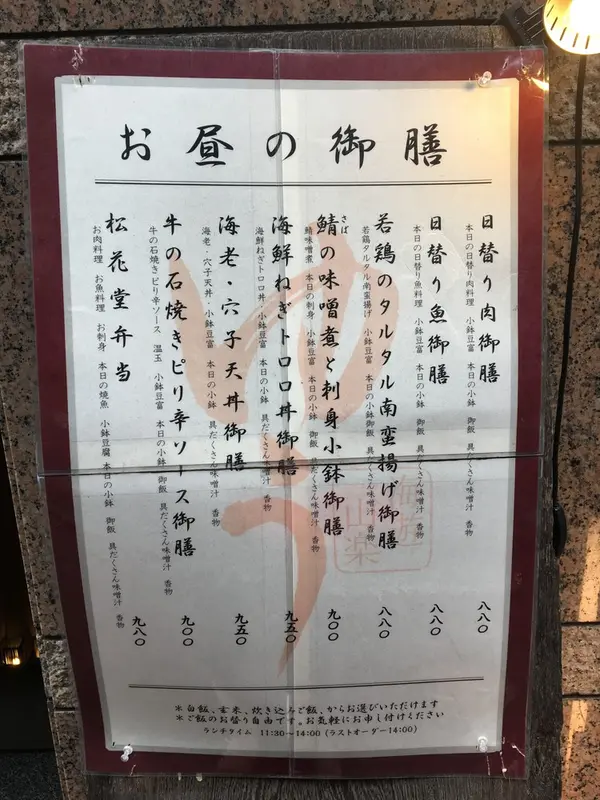 お昼の御膳
日替り肉御膳
本日の日替り肉料理 小鉢豆富 本日の小鉢 御飯 具だくさん味噌汁 香物
八八〇
日替り魚御膳
本日の日替り魚料理 小鉢豆富 本日の小鉢 御飯 具だくさん味噌汁 香物
八八〇
若鶏のタルタル南蛮揚げ御膳
若鶏タルタル南蛮揚げ 小鉢豆富 本日の小鉢 御飯 具だくさん味噌汁 香物
八八〇
鯖の味噌煮と刺身小鉢御膳
さば
鯖味噌煮 本日の刺身 小鉢豆富 本日の小鉢 御飯 具だくさん味噌汁 香物
九〇〇
海鮮ねぎトロロ丼御膳
海鮮ねぎトロロ丼 小鉢豆富 本日の小鉢 具だくさん味噌汁 香物
九五〇
海老・穴子天丼御膳
海老・穴子天丼 小鉢豆富 本日の小鉢 具だくさん味噌汁 香物
九五〇
牛の石焼きピリ辛ソース御膳
牛の石焼きピリ辛ソース 温玉 小鉢豆富 本日の小鉢 御飯 具だくさん味噌汁 香物
九〇〇
松花堂弁当
お肉料理 お魚料理 お刺身 本日の焼魚 小鉢豆腐 本日の小鉢 御飯 具だくさん味噌汁 香物
九八〇
ゆう
＊白飯、玄米、炊き込みご飯、からお選びいただけます
＊ご飯のお替り自由です。お気軽にお申し付けください
ランチタイム 11:30～14:00 (ラストオーダー14:00)